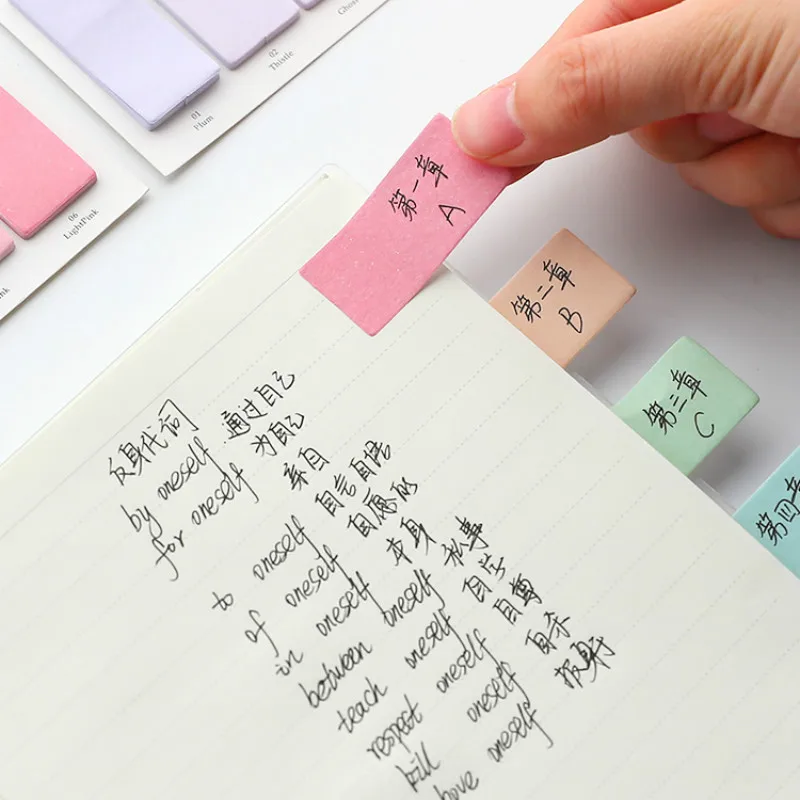 01
Plum
02
Thistle
06
LightPink
第一章
A
第二章
B
第三章
C
第四章
反身代词
by oneself 通过自己
for oneself 为自己
亲自
to oneself 自言自语
of oneself 自愿的
in oneself 本身
between oneself 私事
teach oneself 自学
respect oneself 自尊
kill oneself 自杀
have oneself